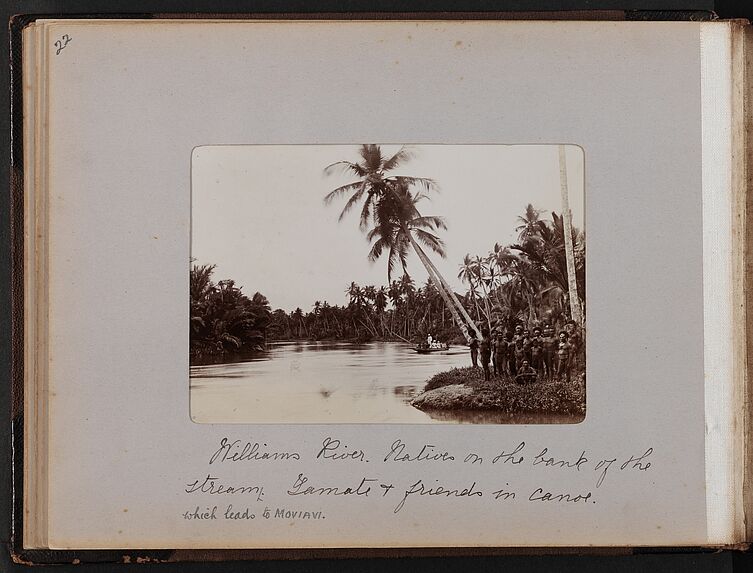 22
Williams River. Natives on the bank of the
stream; Tamate + friends in canoe.
which leads to MOVIAVI.